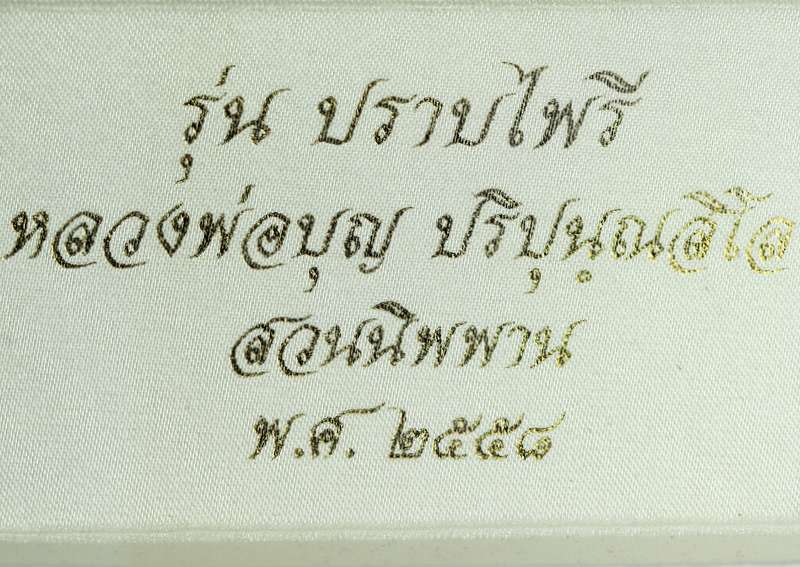 รุ่น ปราบไพรี
หลวงพ่อบุญ ปริปุนฺณสีโล
สวนนิพพาน
พ.ศ. ๒๕๕๘